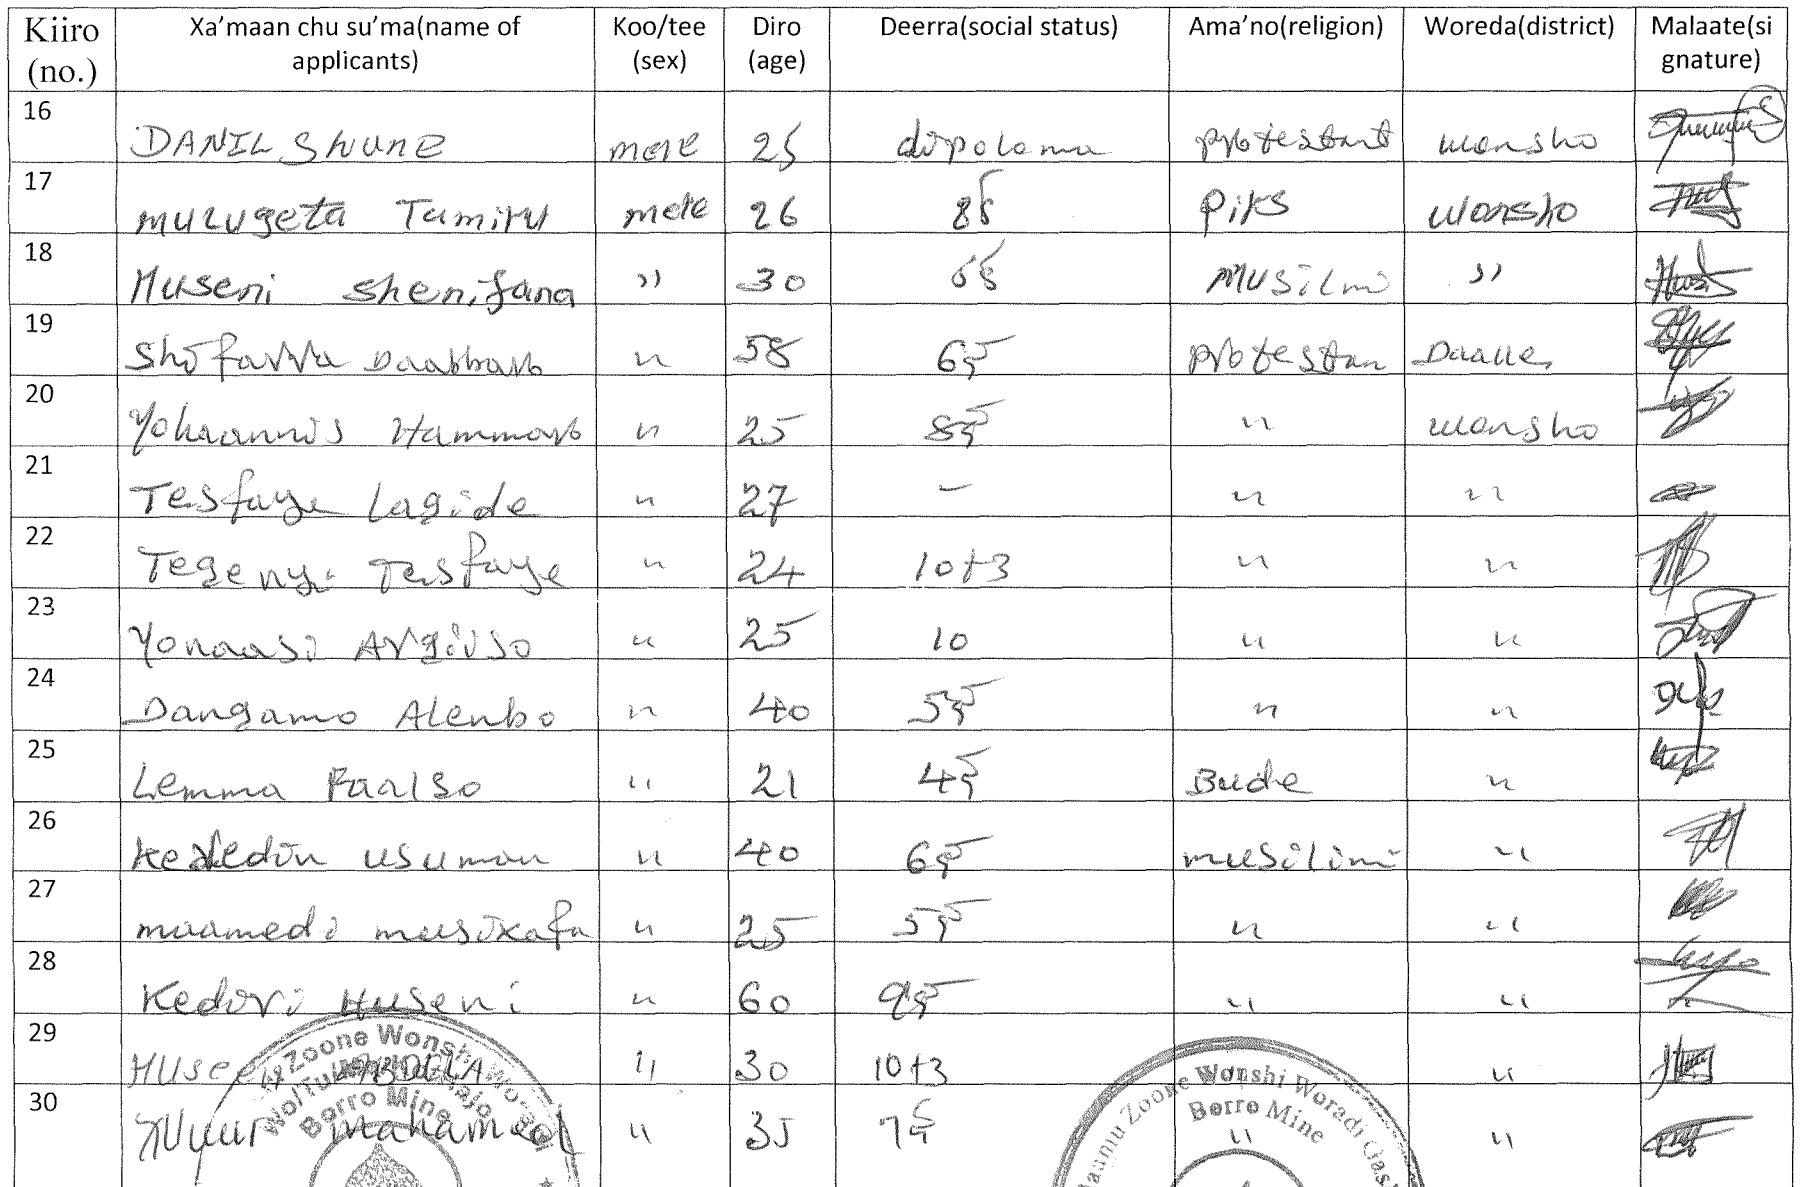 Kiiro (no.) Xa'maan chu su'ma(name of applicants) Koo/tee (sex) Diro (age) Deerra(social status) Ama'no(religion) Woreda(district) Malaate(signature)
16 DANIL Shune mele 25 dipoloma protestant wonsho
17 mulugeta Tamiru mele 26 8ኛ Piks wonsho
18 Huseni shenifana " 30 6ኛ Musilmi "
19 Shifarra Daabbasb " 58 6ኛ protestan Daalle
20 Yohaannis Hammasb " 25 8ኛ " wonsho
21 Tesfaye Lagide " 27 - " "
22 Tegenye Tesfaye " 24 10+3 " "
23 Yonaasi Argiiso " 25 10 " "
24 Dangamo Alenbo " 40 5ኛ " "
25 Lemma Faalso " 21 4ኛ Bude "
26 Kedledin usuman " 40 6ኛ musilimi "
27 maamedi musixafa " 25 5ኛ " "
28 Kediri Huseni " 60 9ኛ " "
29 HUseen ABDELA " 30 10+3 " "
30 Nuur mahamed " 35 7ኛ " "
Zoone Wonshi Woradi
Borro Mine
Daannu Zoone Wonshi Woradi Gash
Borro Mine